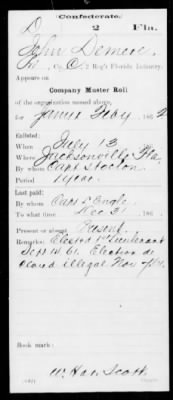 Confederate.
D 2 Fla.
John Demere
Co. C, 2 Reg't Florida Infantry.
Appears on
Company Muster Roll
of the organization named above,
for Jan & Feby, 186 2
Enlisted:
When July 13
Where Jacksonville Fla.
By whom Capt Stockton
Period 1 year
Last paid:
By whom Capt L'Engle
To what time Dec 31, 186
Present or absent Present
Remarks: Elected 1st Lieutenant
Sept 14. 61. Election de
clared illegal Nov
Book mark:
Scott